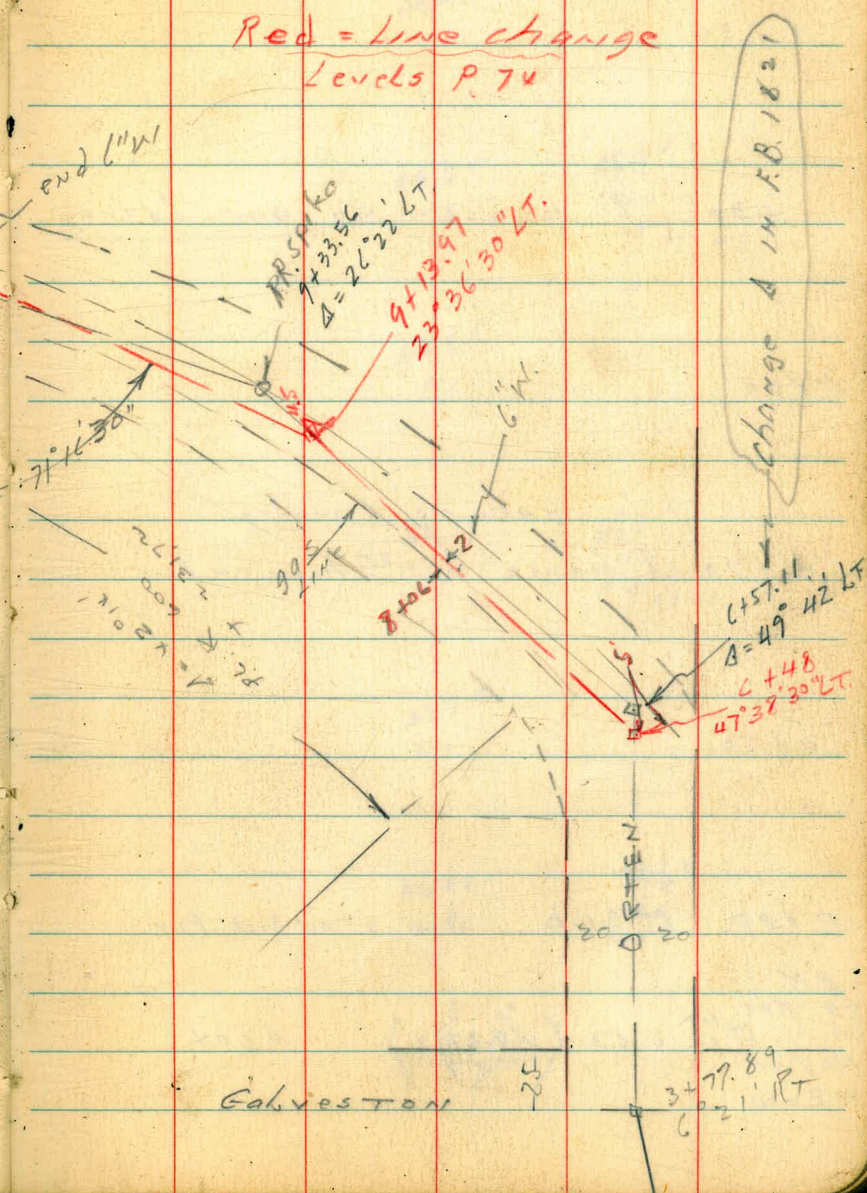 Red = Line change
Levels P. 74
change Δ in F.B. 1821
end 6" W
R.R. Spike
9+33.56
Δ = 26° 22' LT.
9+13.97
23° 36' 30" LT.
6" W.
71° 16' 30"
gas
Line
8+06
+2
6+57.11
Δ = 49° 42' LT
6+48
47° 38' 30" LT.
5
20
ORTEN
20
25
Galveston
3+77.89
6° 21' RT